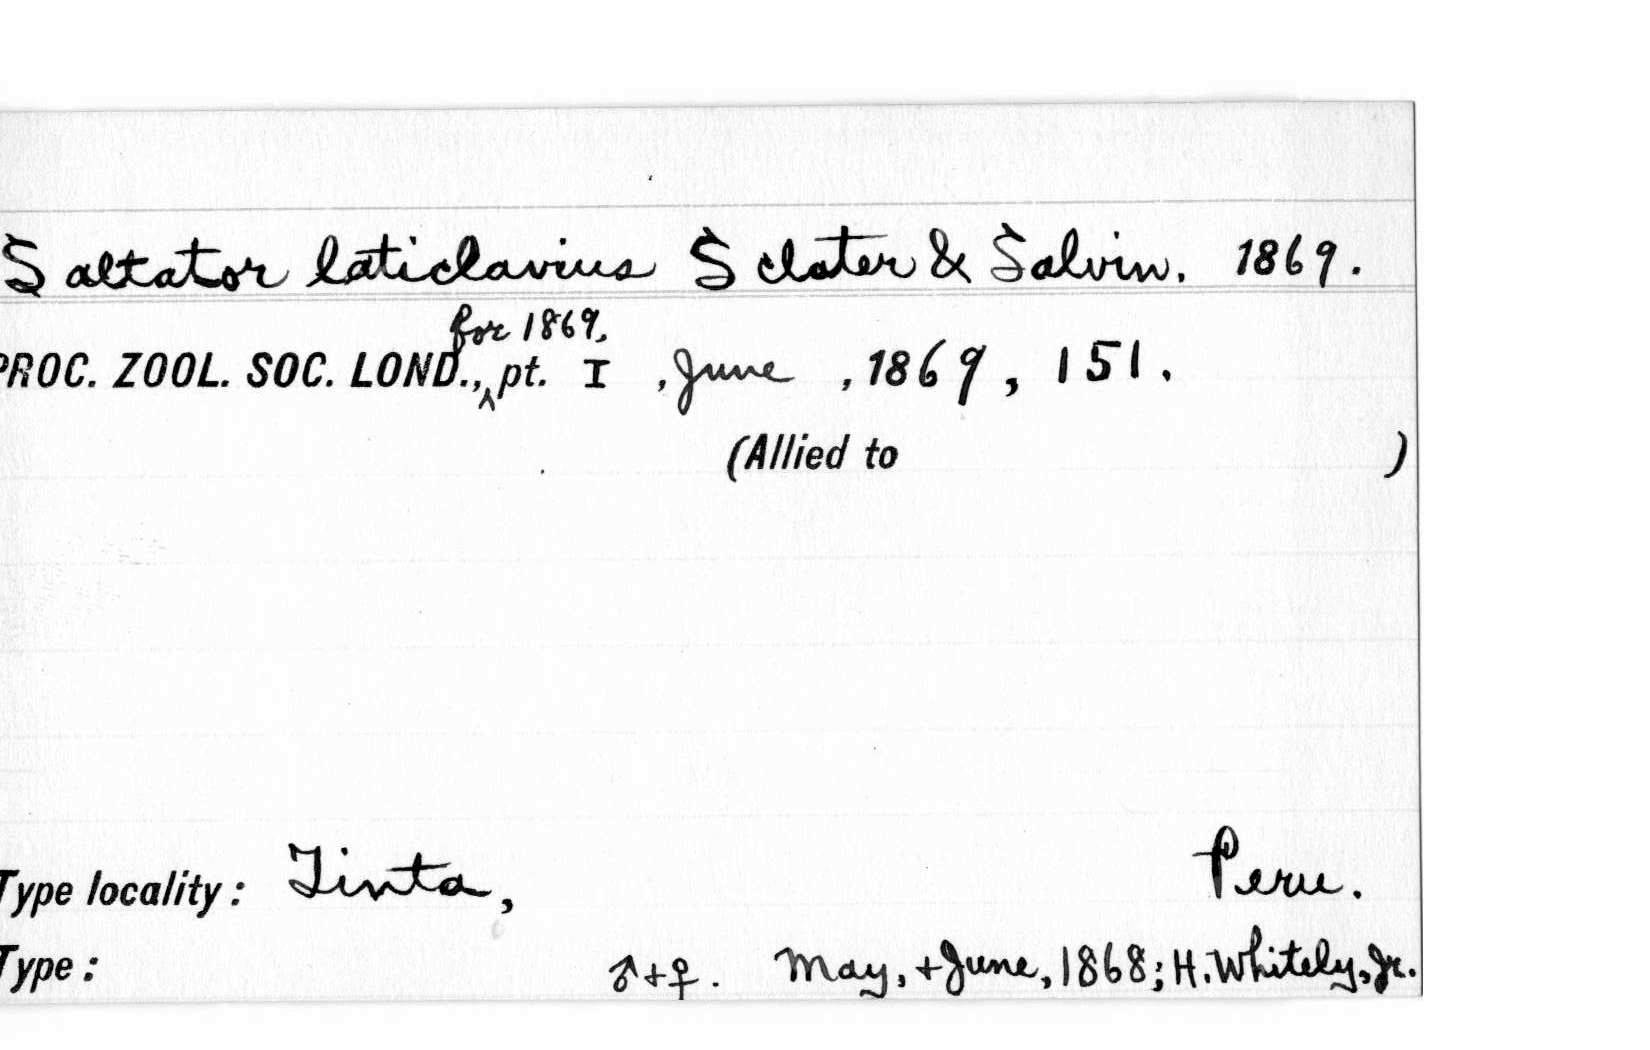 Saltator laticlavius Sclater & Salvin. 1869.
for 1869,
PROC. ZOOL. SOC. LOND., ‸ pt. I , June , 1869, 151.
(Allied to )
Type locality: Tinta, Peru.
Type: ♂+♀. May, + June, 1868; H. Whitely, Jr.